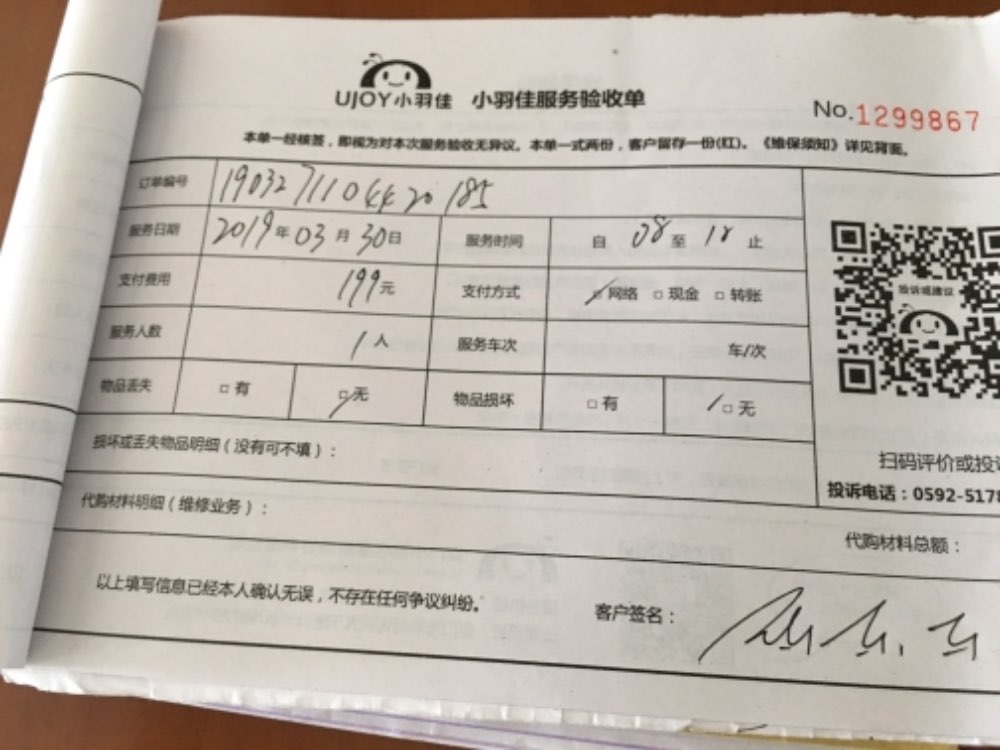 UJOY小羽佳 小羽佳服务验收单
No.1299867
本单一经核签，即视为对本次服务验收无异议。本单一式两份，客户留存一份(红)。《维保须知》详见背面。
订单编号 1903271104420185
服务日期 2019年03月30日 服务时间 自 08 至 18 止
支付费用 199元 支付方式 ☑网络 □现金 □转账
服务人数 1人 服务车次 车/次
物品丢失 □有 ☑无 物品损坏 □有 ☑无
投诉或建议
损坏或丢失物品明细（没有可不填）：
扫码评价或投诉
投诉电话：0592-5178
代购材料明细（维修业务）：
代购材料总额：
以上填写信息已经本人确认无误，不存在任何争议纠纷。
客户签名：